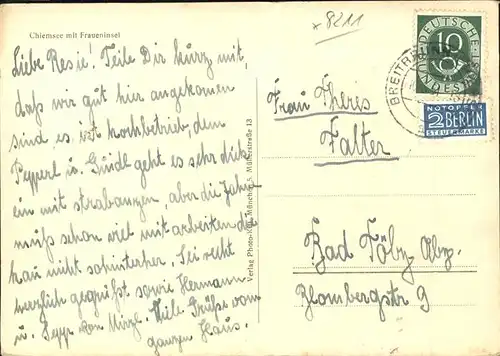 Chiemsee mit Fraueninsel
x 8211
Liebe Resie! Teile Dir kurz mit,
daß wir gut hier angekommen
sind, es ist hochbetrieb, dem
Pepperl u. geht es sehr dick
ein mit strabanzen, aber die
muß schon viel mit arbeiten da
kau nicht so hinterher. Sei recht
herzlich gegrüßt sowie Hermann
u. Sepp von Mirzl. Viele Grüße vom
ganzen Haus.
Verlag Photo- München 5, Müllerstraße 13
DEUTSCHE
BUNDESPOST
10
BREITBR
NOTOPFER
2 BERLIN
STEUERMARKE
Frau Theres
Falter
Bad Tölz Obb.
Blombergstr 9